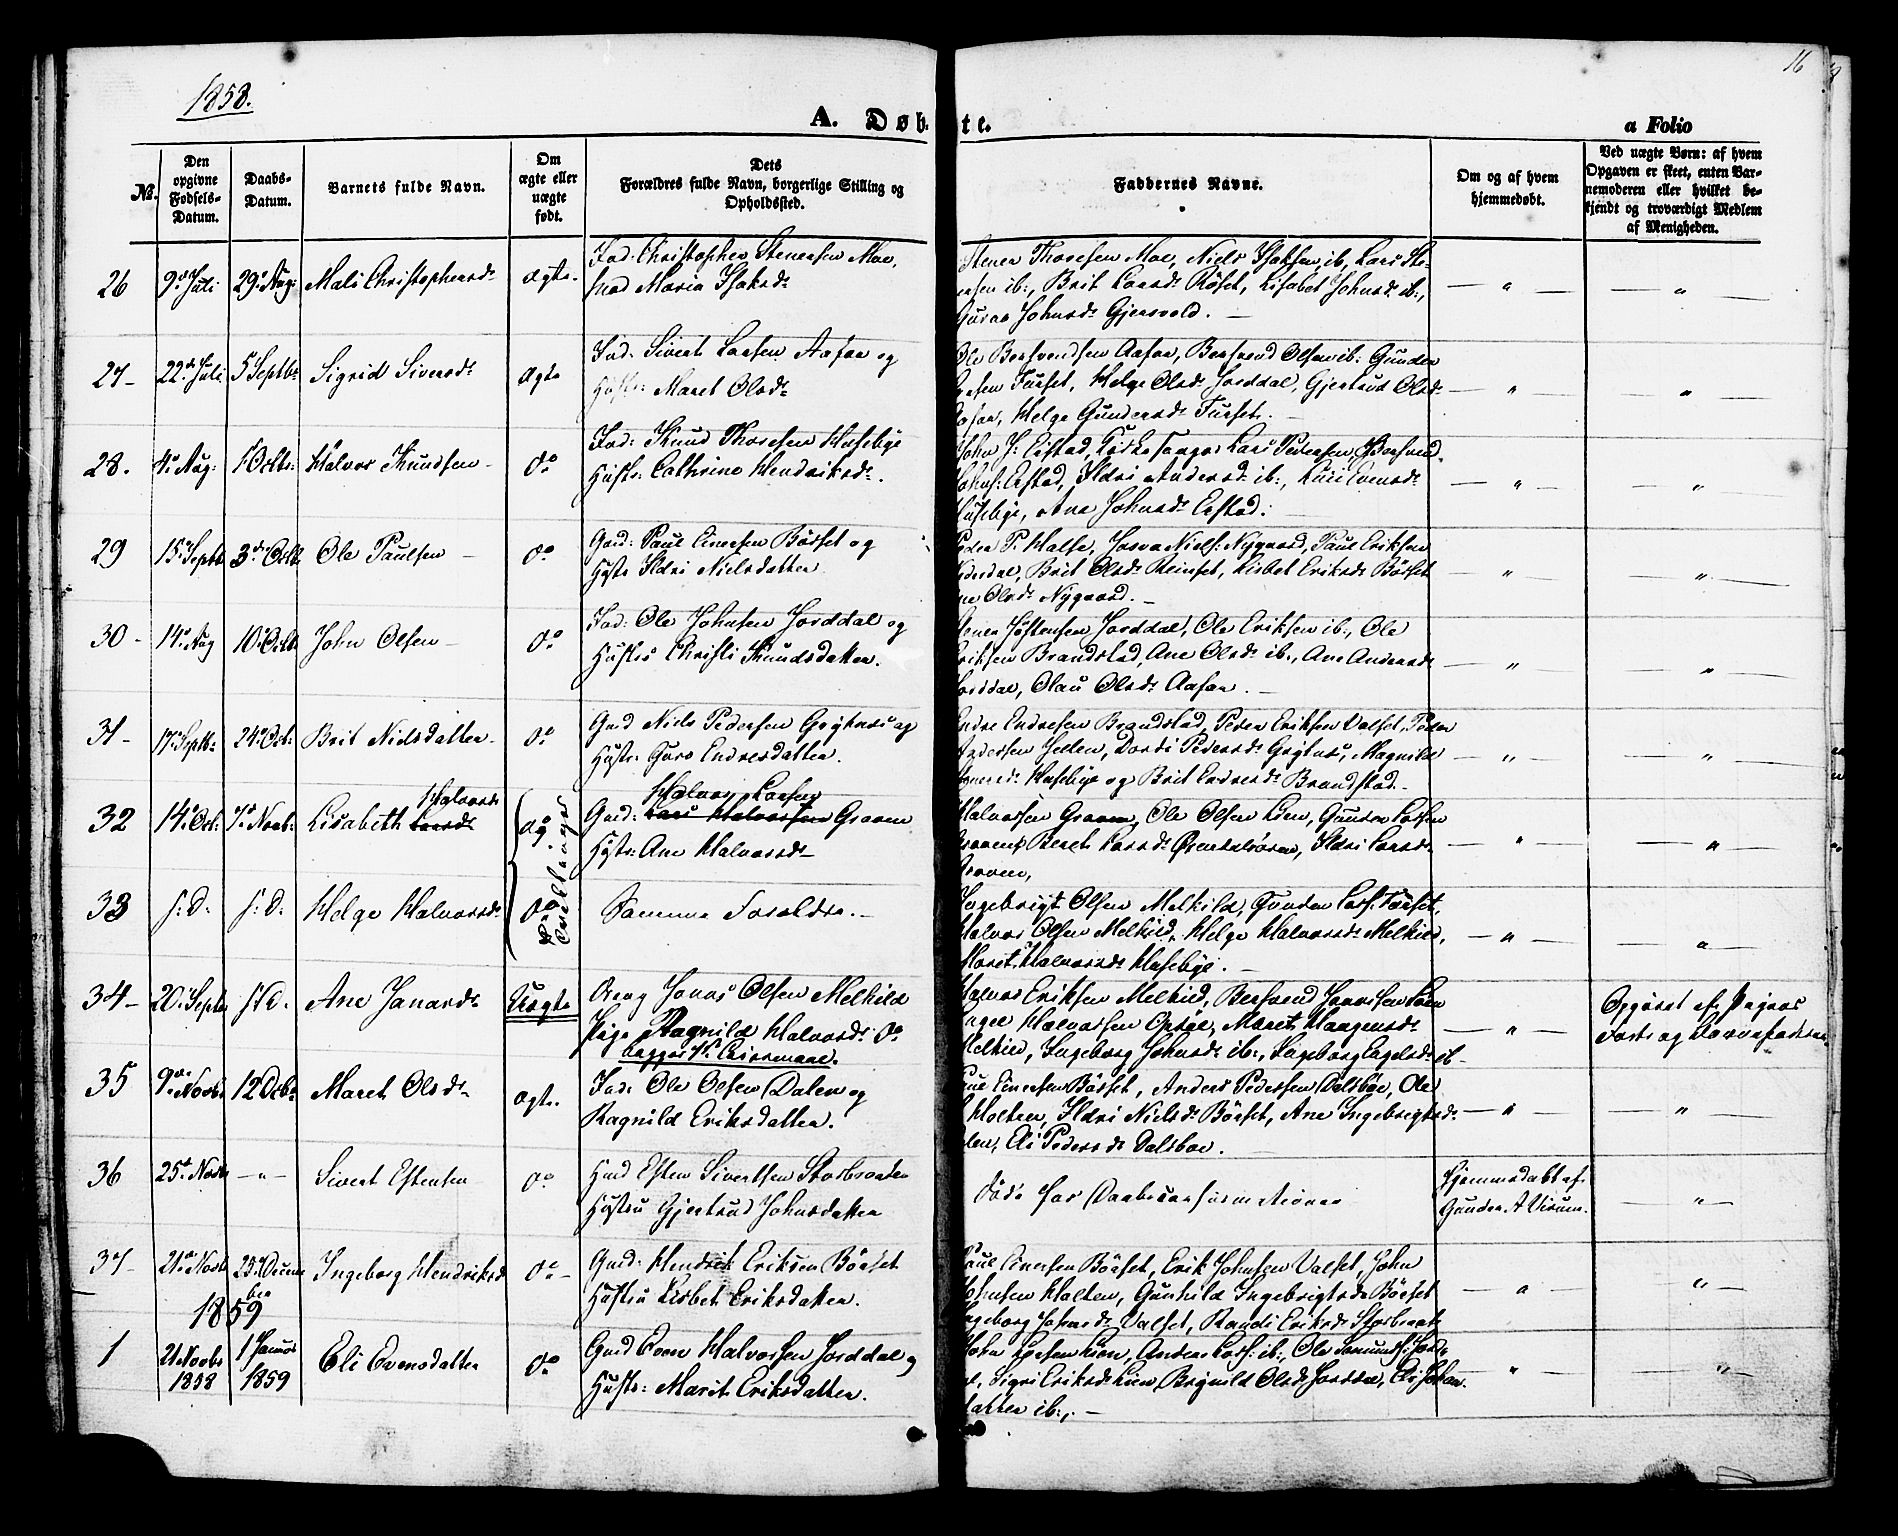 1858.
16
A. Døbte.
a Folio
No.
Den opgivne Fødsels-Datum.
Daabs-Datum.
Barnets fulde Navn.
Om ægte eller uægte født.
Dets Forældres fulde Navn, borgerlige Stilling og Opholdssted.
Faddernes Navne.
Om og af hvem hjemmedøbt.
Ved uægte Børn: af hvem Opgaven er skeet, enten Barnemoderen eller hvilket bekjendt og troværdigt Medlem af Menigheden.
26 9de Juli 29de Aug: Mali Christophersd: ægte. Ind: Christopher Stenersen Moe,
Maria Isaksd:
Stener Thoresen Moe, Niels Isaksen ib, Lars
ib:, Brit Larsd: Röset, Lisabet Johnsd: ib:,
Guroe Johnsd: Gjersvold. —
27 – 22de Juli 5 Septbr Sigrid Siversd: ægte Ind: Sivert Larsen Aasar og
Hustr: Maret Olsd:
Ole Bersvendsen Aasar, Bersvend Olsen ib: Gunder
Furset, Helge Olsd: Jorddal, Gjertrud Olsd:
Helge Gundersd: Furset. —
28. 4de Aug: 1 Octbr: Halvor Knudsen – do Ind: Knud Thoresen Husebye
Hustr: Cathrine Hendriksd:.
John J: Eistad, Kirkesanger Lars Pedersen, Bersvend
Johns: Eistad, Ildri Andersd: ib:, Evensd:
Husebye, Ane Johnsd: Eistad.
29 15 Septbr 3de Octb: Ole Paulsen – do Gmd: Paul Einersen Böset og
Hustr Ildri Nielsdatter
Peder P. Halse, Niels: Nygaard, Paul Eriksen
Brit Olsd: Reinset, Lisbet Eriksd: Böset
Olsd: Nygaard. —
30 – 14de Aug 10de Octb: John Olsen – do Ind: Ole Johnsen Jorddal og
Hustru Christi Knudsdatter.
Jorddal, Ole Eriksen ib:, Ole
Eriksen Brandstad, Ane Olsd: ib:, Ane Andersd:
Jorddal, Olau Olsd: Aasar. —
31 – 17de Septb: 24de Oct: Brit Nielsdatter do Gmd Niels Pedersen Grytnes og
Hustr: Guro Endresdatter.
Endre Endresen Brandstad, Peder Eriksen Valset, Peder
Andersen Dordi Pedersd: Grytnes, Magnild
Husebye og Brit Endresd: Brandstad. —
Halvorsd:
Halvor Larsen
32 14de Oct: 7de Novb: Lisabeth Larsd: Gmd: Lars Halvorsen Graven
Hustr: Ane Halvorsd: –
Halvorsen Graven, Ole Olsen Lien, Gunder Larsen
Graven, Beret Larsd: Ørendalsöen, Ildri Larsd:
Graven,
Tvillinger
33 s: D. s: D. Helge Halvorsd: do Samme Foreldre. –
Ingebrigt Olsen Melhild, Gunder Lars: Furset,
Halvor Olsen Melhild, Helge Halvorsd: Melhild,
Maret Halvorsd: Husebye. —
34 – 20de Septbr s: D. Ane Janasd: Uægte Dreng Jonas Olsen Melhild
Pige Ragnild Halvorsd: do
Halvor Eriksen Melhild, Bersvend
Halvorsen Opsöe, Maret Haagensd:
Melhild, Ingeborg Johnsd: ib:, Ingeborg Engelsd: ib
35 9de Novbr 12 Decbr Maret Olsd: ægte. Ind: Ole Olsen Dalen og
Ragnild Eriksdatter.
Paul Einersen Böset, Anders Pedersen Dalsbøe, Ole
Holten, Ildri Nielsd: Böset, Ane Ingebrigtsd:
Eli Pedersd: Dalsboe.
36 25de Novbr – „ – Sivert Estensen do Esten Sivertsen Storbraaten
Hustru Gjertrud Johnsdatter
Døde før Daabs
Hjemmedøbt af
Gunder A. Virum.
37 – 21de Novbr 25de Decem Ingeborg Hendriksd do – Gmd: Hendrik Eriksen Böset
ber
Hustru Lisbet Eriksdatter.
Paul Einersen Böset, Erik Johnsen Valset, John
Johnsen Holten, Gunhild Ingebrigtsd: Böset
Ingeborg Johnsd: Valset, Randi Eriksd: Storbraat:
1859
1 21 Novbr 1858 1 Januar 1859 Eli Evensdatter do Gmd Even Halvorsen Jorddal og
Hustr: Marit Eriksdatter.
John Larsen Lien, Anders Lars: ib:, Ole
Sigri Eriksd: Lien, Olsd: Jorddal, Eli Johns
datter ib:. —